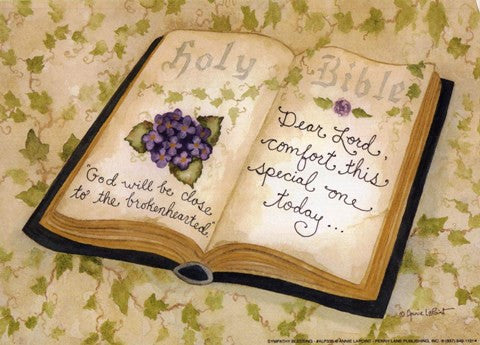 Holy Bible
"God will be close
to the brokenhearted."
Dear Lord,
comfort this
special one
today...
© Annie LaPoint
SYMPATHY BLESSING - #ALP335 © ANNIE LAPOINT - PENNY LANE PUBLISHING, INC. ® (937)